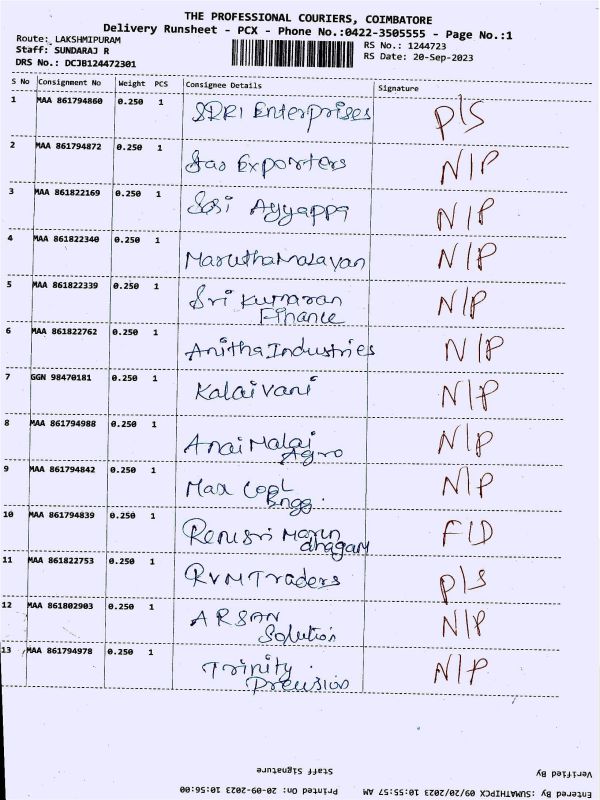 THE PROFESSIONAL COURIERS, COIMBATORE
Delivery Runsheet - PCX - Phone No.:0422-3505555 - Page No.:1
Route: LAKSHMIPURAM
RS No.: 1244723
Staff: SUNDARAJ R
RS Date: 20-Sep-2023
DRS No.: DCJB124472301
S No Consignment No Weight PCS Consignee Details Signature
1 MAA 861794860 0.250 1 SRRI Enterprises P/S
2 MAA 861794872 0.250 1 Exporters N/P
3 MAA 861822169 0.250 1 Sasi Ayyappa N/P
4 MAA 861822340 0.250 1 MaruthaMalayan N/P
5 MAA 861822339 0.250 1 Sri Kumaran N/P
Finance
6 MAA 861822762 0.250 1 Anitha Industries N/P
7 GGN 98470181 0.250 1 Kalai Vani N/P
8 MAA 861794988 0.250 1 Anai Malai N/P
Agro
9 MAA 861794842 0.250 1 Max Cool N/P
Engg.
10 MAA 861794839 0.250 1 Renusri Marun F/D
dhagam
11 MAA 861822753 0.250 1 RVM Traders P/S
12 MAA 861802903 0.250 1 ARSAN N/P
Solution
13 MAA 861794978 0.250 1 Trinity. N/P
Precision
Verified By
Staff Signature
Entered By :SUMATHIPCX 09/20/2023 10:55:57 AM
Printed On: 20-09-2023 10:56:00